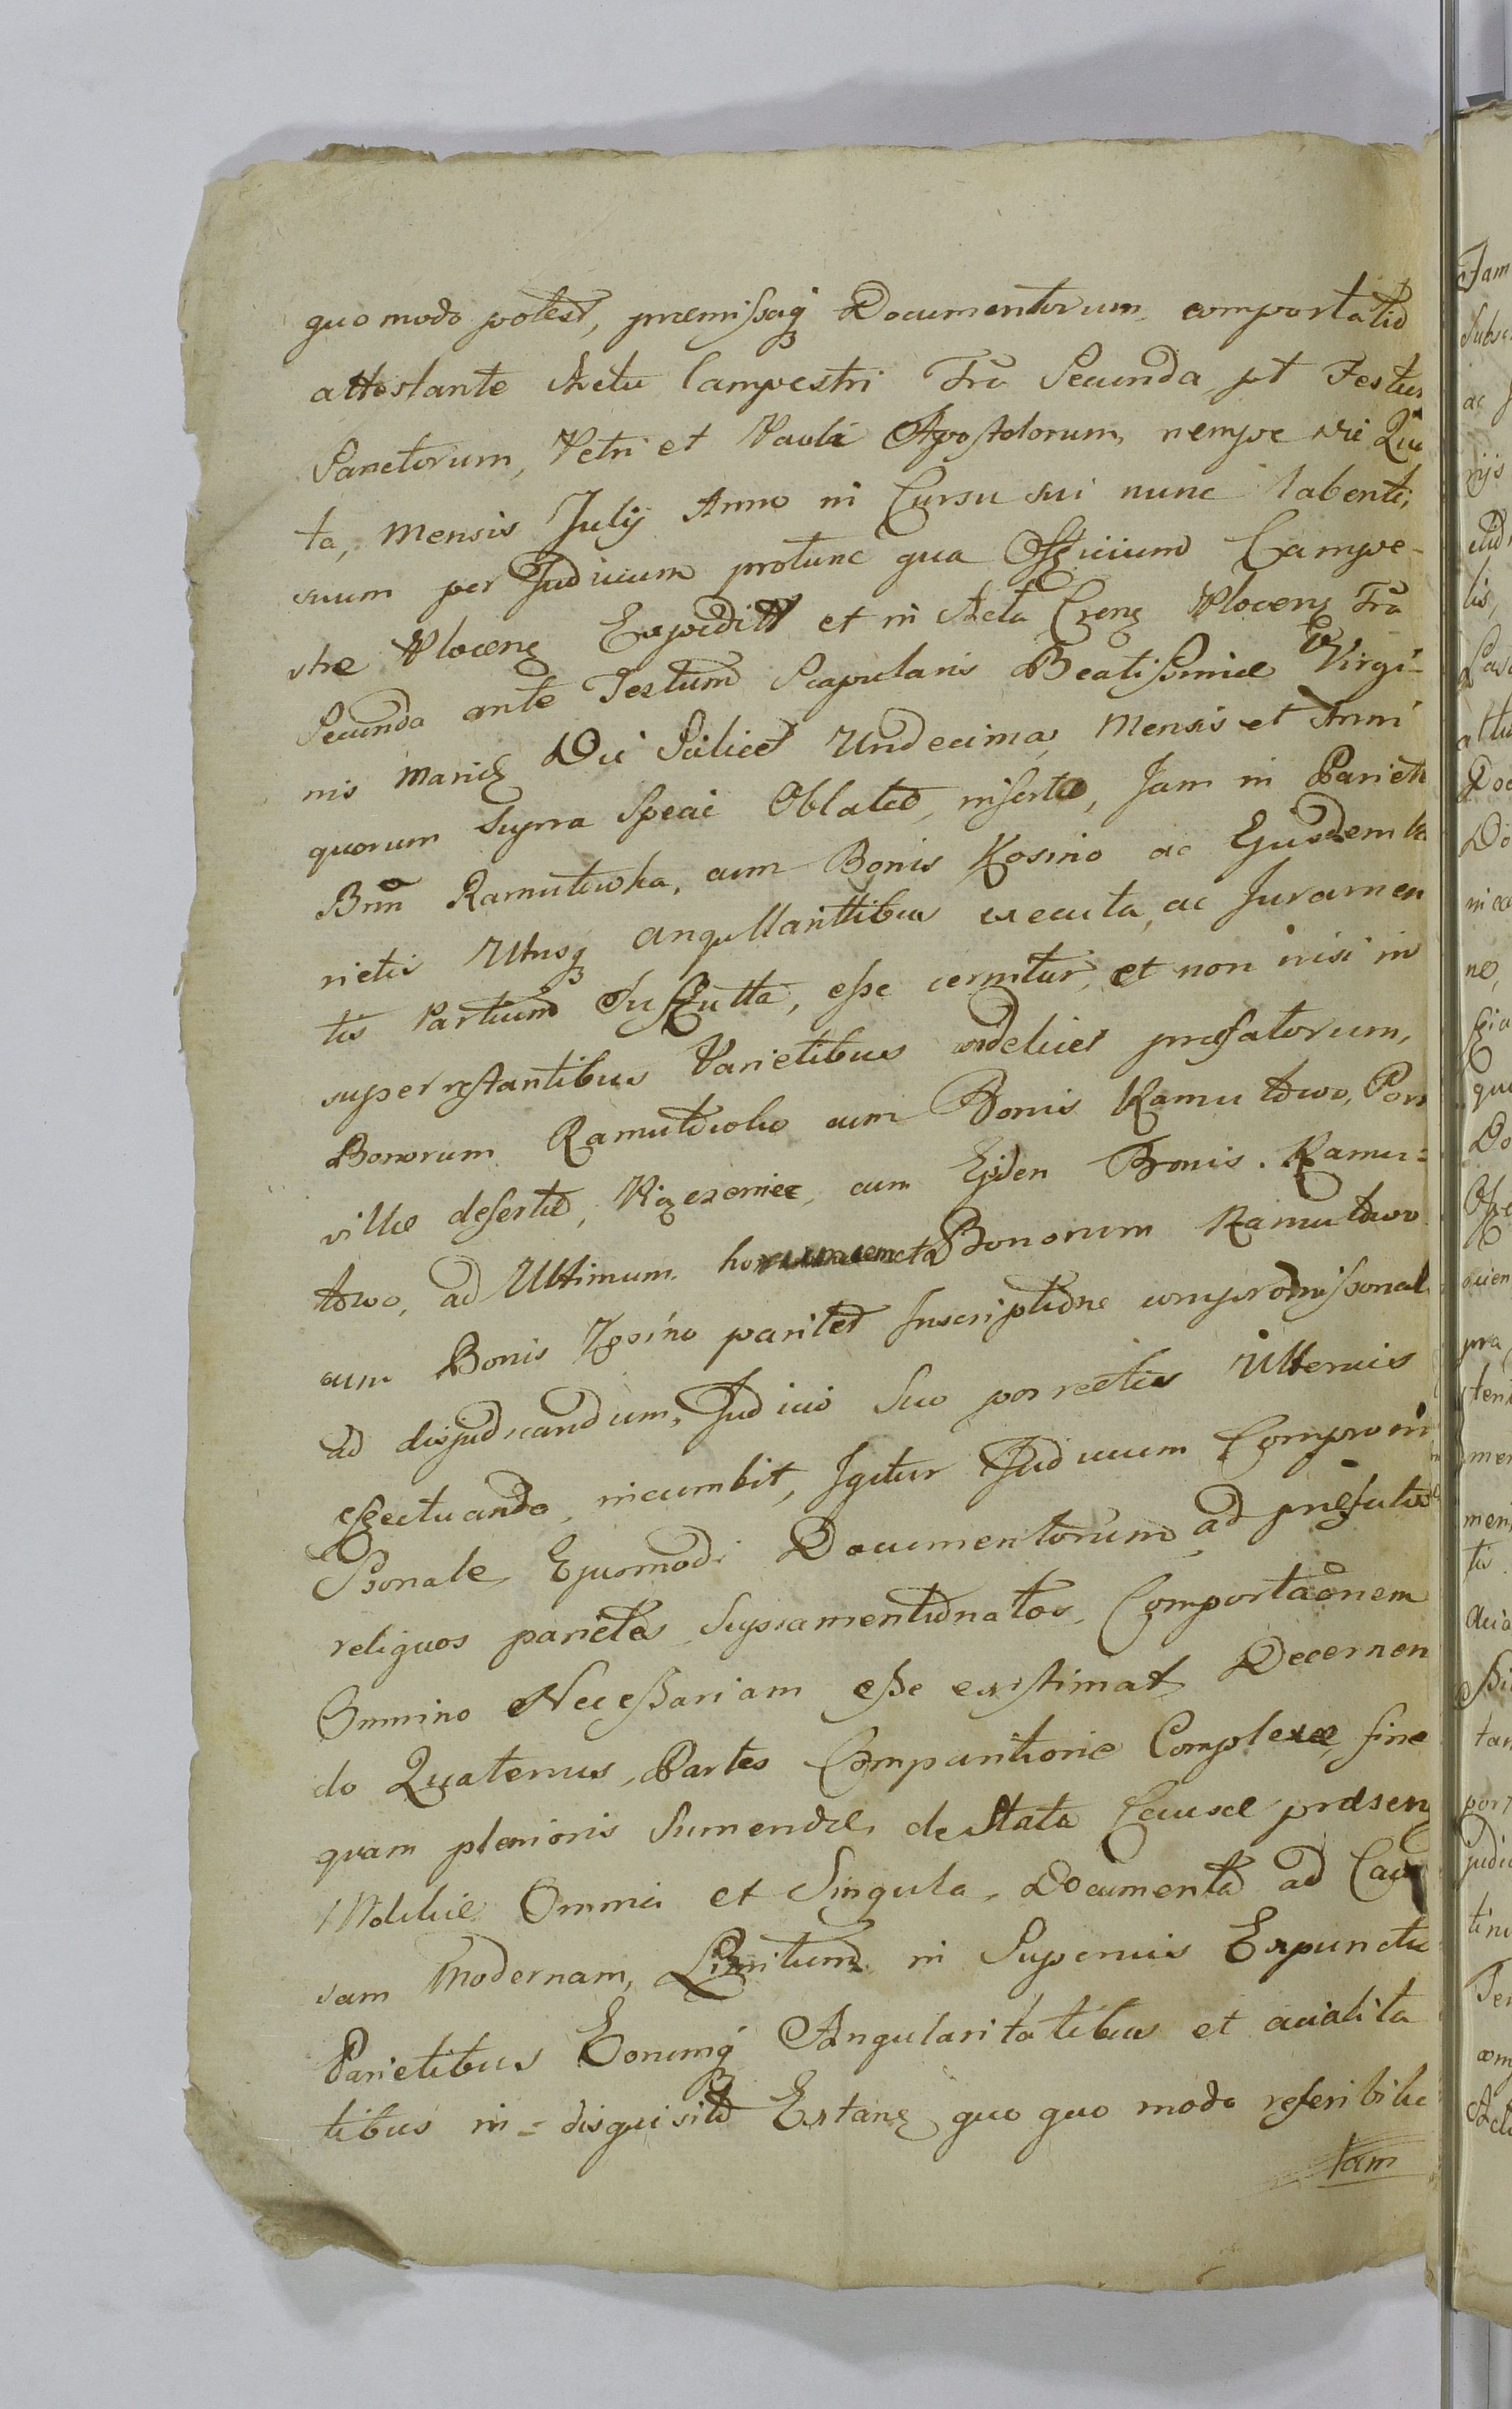 quomodo potest, præmissaq; Documentorum comportatio
attestante Actu Campestri Fra Secunda pt Festum
Sanctorum, Petri et Pauli Apostolorum, nempe die Quin
ta, Mensis Julij Anno in Cursu sui nunc labenti,
suum per Judicium protunc qua Officium Campe-
stre Plocens Expedit et in Acta Crens Plocens Fra
Secunda ante Festum Scapularis Beatissimæ Virgi-
nis Mariæ Die Scilicet Undecima, Mensis et Anni
quorum Supra Speai Oblata, inserta, Jam in Pariete
Bnn Ramutowka, cum Bonis Kosino ac Ejusdem Pa
rietis Utrisq angullaritibus executa, ac Juramen
tis Partium Suffulta, esse cernitur, et non nisi in
superrestantibus Parietibus videlicet præfatorum,
Bonorum Ramutowko cum Bonis Ramutowo, Pors
villæ desertæ, cum Ejsden Bonis. Ramu=
towo, ad Ultimum Bonorum Ramutowo
cum Bonis Kosino pariter Inscriptione compromissonal
ad disjudicandum, Judicio Suo porrectis Ulterius
effectuando, incumbit, Igitur Judicium Comprom
issonale Ejusmodi Documentorum ad præfatos
reliquos parietes Supramentionatos, Comportaonem
Omnino Necessariam esse existimat, Decernen
do Quatenus, Partes Comparitione Complexæ, fine
quam plenioris Sumendæ, de Statu Causæ præsen
Notitiæ Omnia et Singula, Documenta ad Cau
sam Modernam, Limitum in Supernis Expunctis
Parietibus Eorumq Angularitatibus et acialita
tibus in = disquisito Extans quo quo modo referibilia
tam